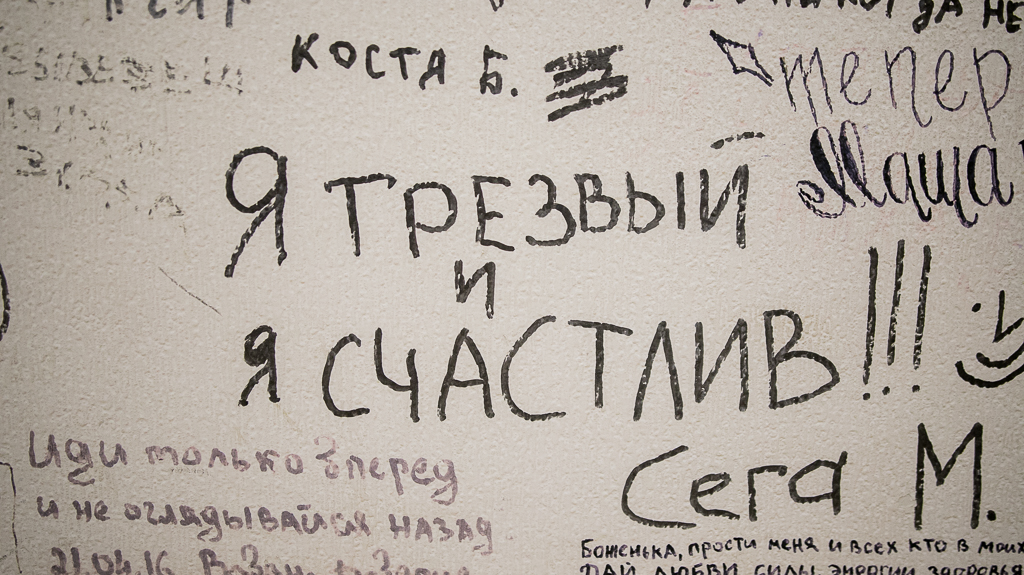 ДА НЕ
КОСТА Б.
тепер
Маша
Я ТРЕЗВЫЙ
И
Я СЧАСТЛИВ!!!
Иди только вперед
и не оглядывайся назад
Сега М.
21.04.16
Боженька, прости меня и всех кто в моих
ДАЙ ЛЮБВИ СИЛЫ ЭНЕРГИИ ЗДОРОВЬЯ